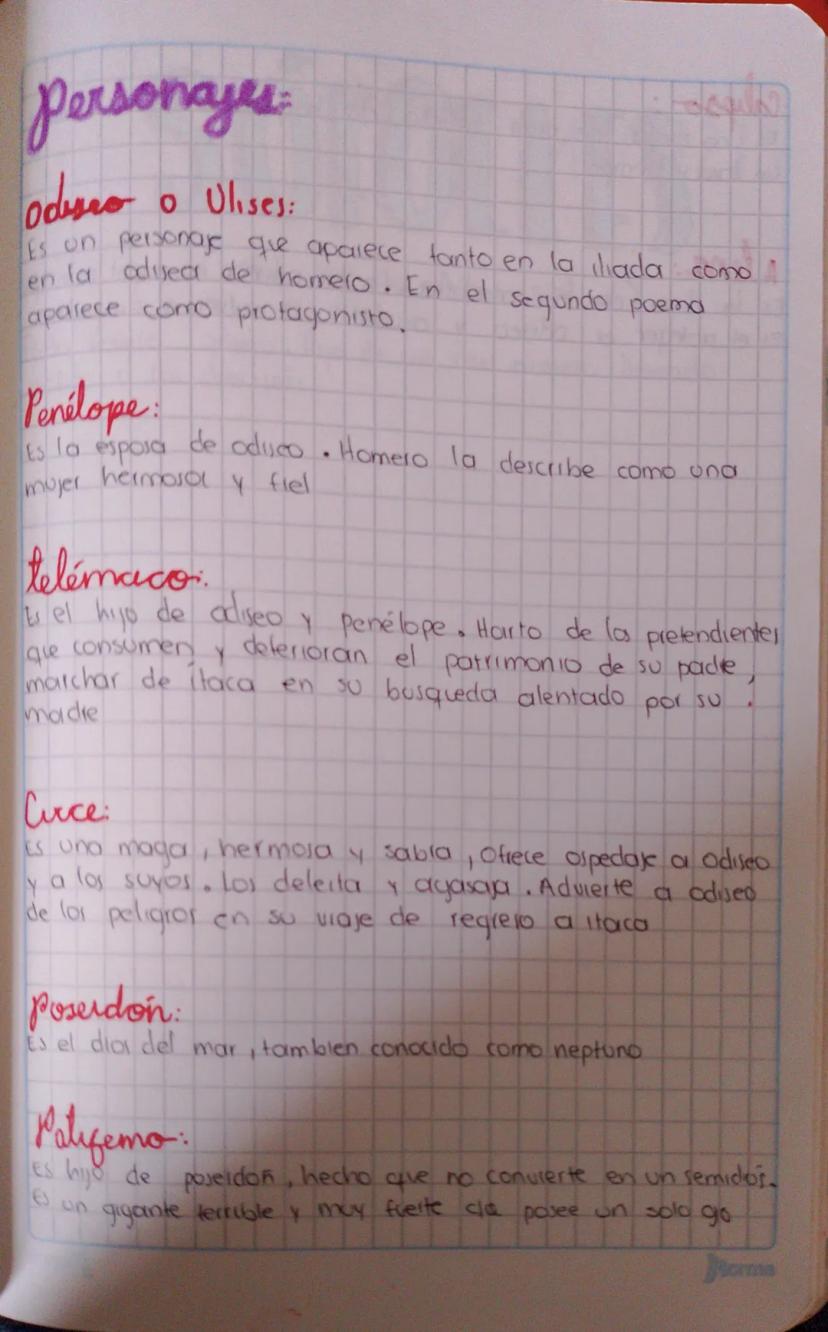 Personajes:
Odiseo o Ulises:
Es un personaje que aparece tanto en la iliada como
en la odisea de homero. En el segundo poema
aparece como protagonisto.
Penélope:
Es la esposa de odiseo. Homero la describe como una
mujer hermosa y fiel
telémaco:
Es el hijo de odiseo y penélope. Harto de los pretendientes
que consumen y deterioran el patrimonio de su padre,
marchar de ítaca en su busqueda alentado por su
madre
Circe:
Es una maga, hermosa y sabia, ofrece ospedaje a odiseo
y a los suyos. Los deleita y agasaja. Advierte a odiseo
de los peligros en su viaje de regreso a itaca
Poseidón:
Es el dios del mar, tambien conocido como neptuno
Polifemo:
Es hijo de poseidon, hecho que no convierte en un semidios.
Es un gigante terrible y muy fuerte posee un solo ojo
Norma